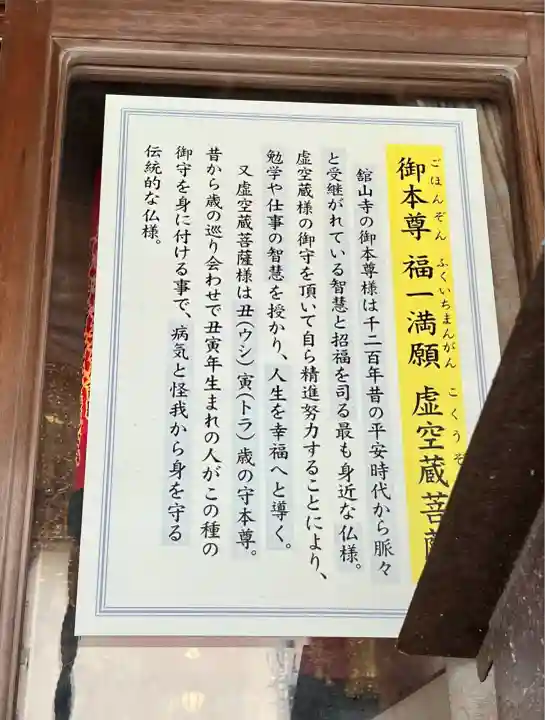 ごほんぞん ふくいちまんがん こくうぞ
御本尊 福一満願 虚空蔵菩薩
舘山寺の御本尊様は千二百年昔の平安時代から脈々
と受継がれている智慧と招福を司る最も身近な仏様。
虚空蔵様の御守を頂いて自ら精進努力することにより、
勉学や仕事の智慧を授かり、人生を幸福へと導く。
又虚空蔵菩薩様は丑(ウシ)寅(トラ)歳の守本尊。
昔から歳の巡り会わせで丑寅年生まれの人がこの種の
御守を身に付ける事で、病気と怪我から身を守る
伝統的な仏様。